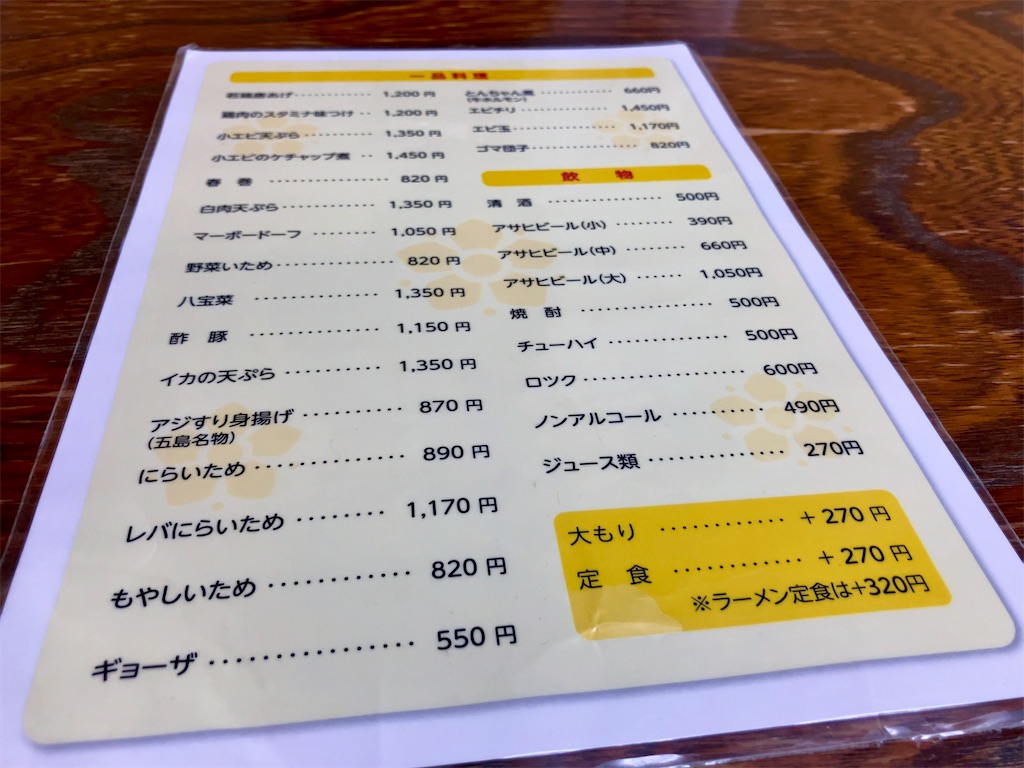 一品料理
若鶏唐あげ 1,200 円
鶏肉のスタミナ味つけ 1,200 円
小エビ天ぷら 1,350 円
小エビのケチャップ煮 1,450 円
春巻 820 円
白肉天ぷら 1,350 円
マーボードーフ 1,050 円
野菜いため 820 円
八宝菜 1,350 円
酢豚 1,150 円
イカの天ぷら 1,350 円
アジすり身揚げ 870 円
(五島名物)
にらいため 890 円
レバにらいため 1,170 円
もやしいため 820 円
ギョーザ 550 円
とんちゃん煮 660円
(牛ホルモン)
エビチリ 1,450円
エビ玉 1,170円
ゴマ団子 820円
飲物
清酒 500円
アサヒビール(小) 390円
アサヒビール(中) 660円
アサヒビール(大) 1,050円
焼酎 500円
チューハイ 500円
ロツク 600円
ノンアルコール 490円
ジュース類 270円
大もり +270 円
定食 +270 円
※ラーメン定食は+320円